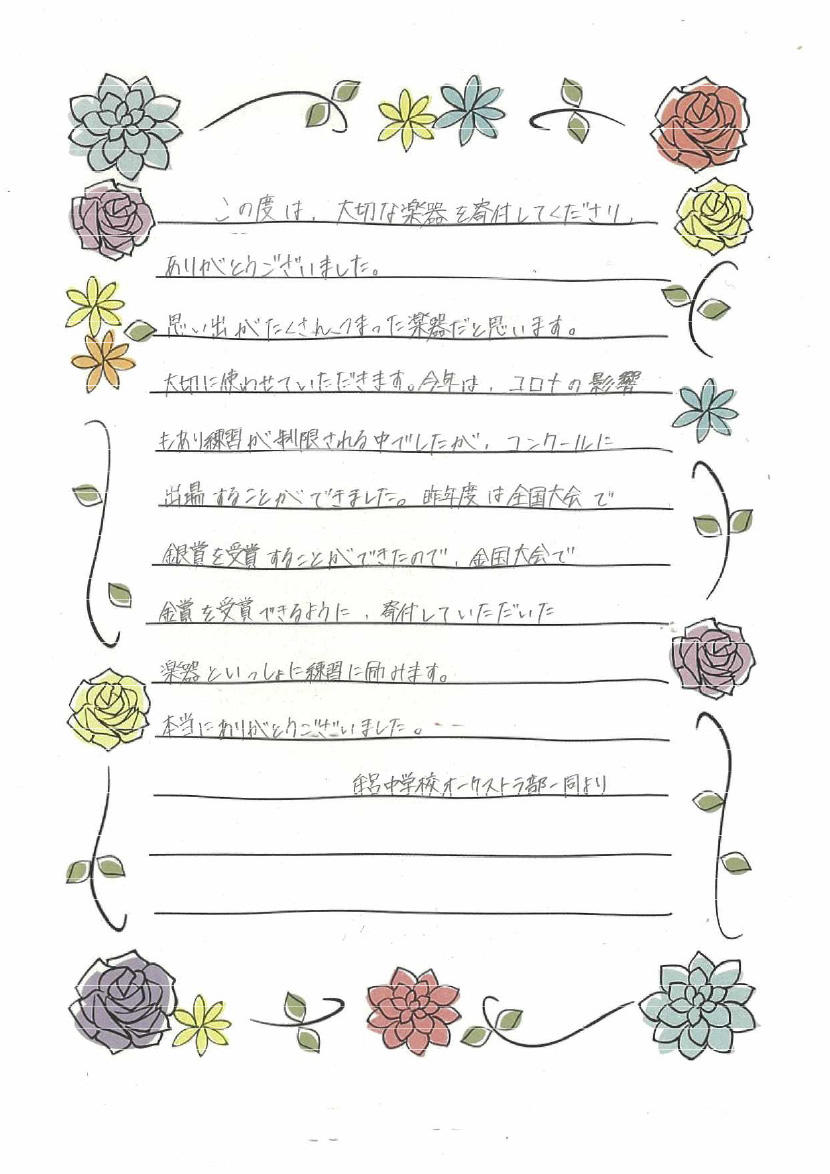 この度は、大切な楽器を寄付してくださり、
ありがとうございました。
思い出がたくさんつまった楽器だと思います。
大切に使わせていただきます。今年は、コロナの影響
もあり練習が制限される中でしたが、コンクールに
出場することができました。昨年度は全国大会で
銀賞を受賞することができたので、全国大会で
金賞を受賞できるように、寄付していただいた
楽器といっしょに練習に励みます。
本当にありがとうございました。
牟呂中学校オーケストラ部一同より